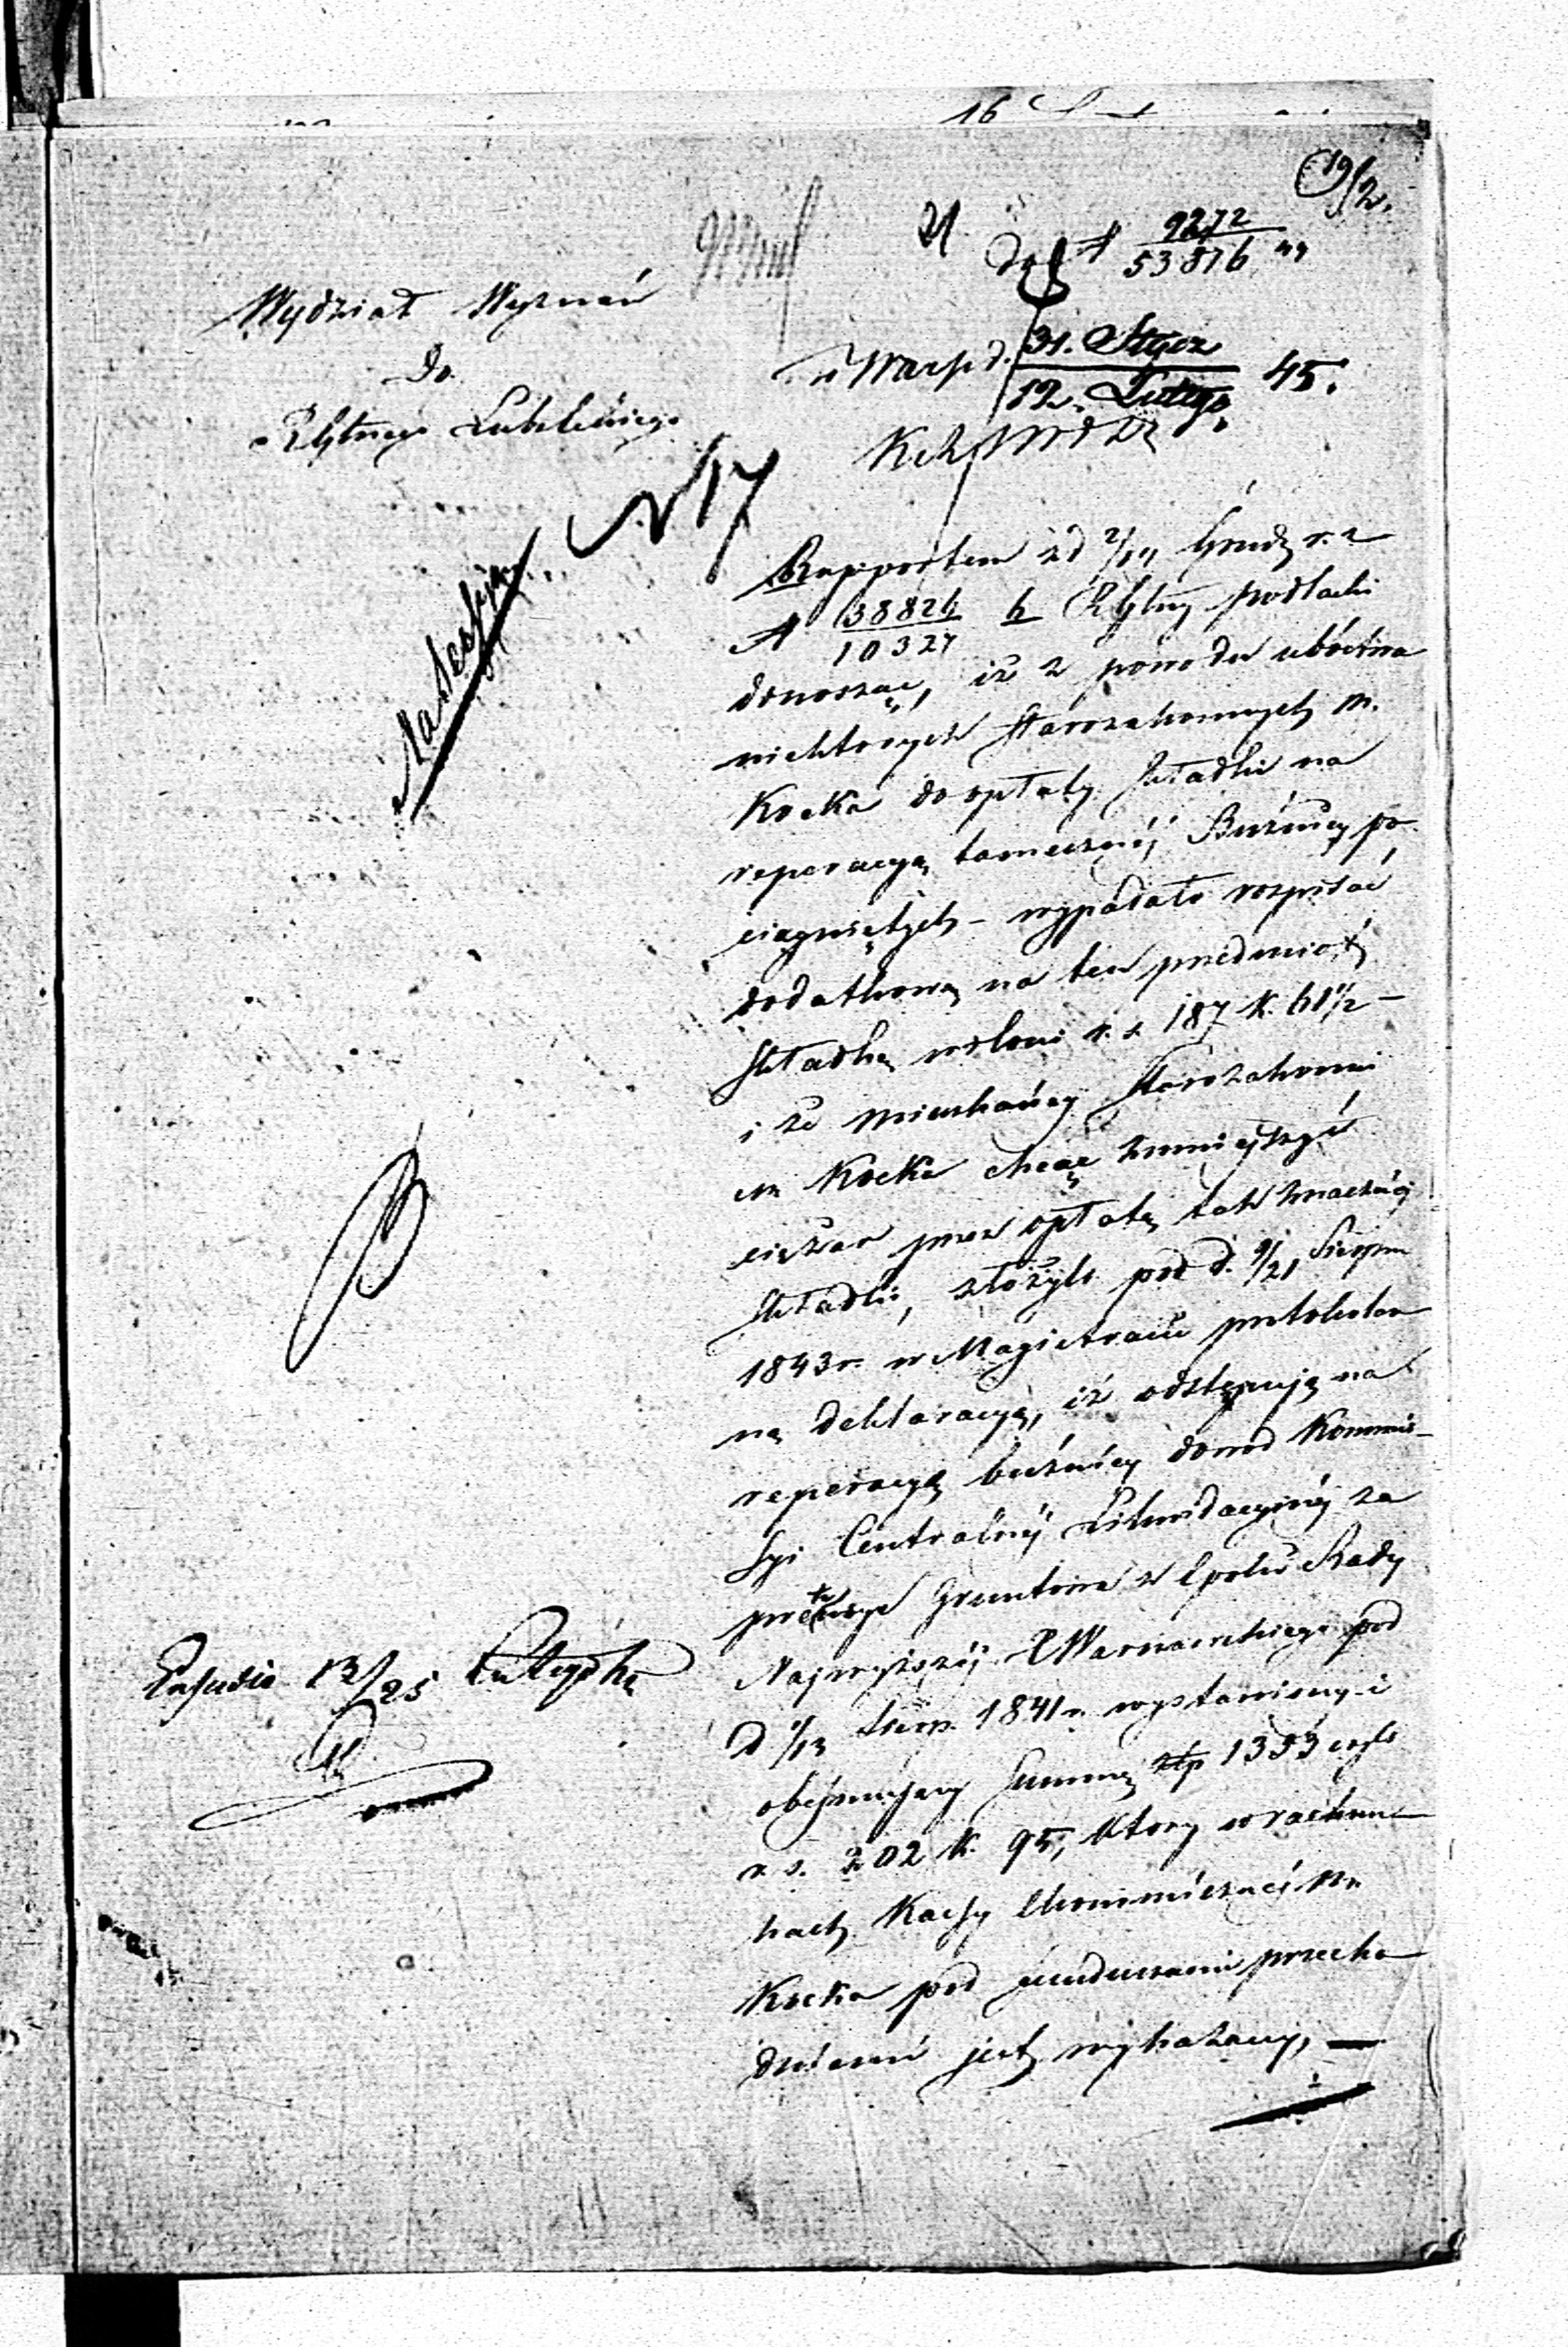 16
19/2.
21
do N 9272/53876 44
Wydział Wyznań
Do
Rządu Gubern. Lubelskiego
w Warsz d. 31. Stycz / 12. Lutego 45.
N 17
Na Sessją
Rapportem z d 2/14 Grudz r. z
N 38826/10327 b. Rząd Gub. podlaski
donosząc, iż z powodu ubóstwa
niektorych Starozakonnych m.
Kocka do opłaty składki na
reperacyą tameczney Bużnicy po-
ciągniętych – wypadało rozpisać
dodatkową na ten przedmiot
składkę w ilości r. s. 187 k. 61 1/2 –
i że mieszkańcy Starozakonni
m Kocka chcąc zmniejszyć
ciężar przez opłatę tak znacznej
składki, złożyli pod d. 9/21 Sierpn
1843 r. w Magistracie protokolar
ną deklaracyą, iż odstępują na
reperacyą bużnicy dowod Kommis-
syi Centralnej Likwidacyjnej za
pretensye gruntowe z Epoki Rady
Najwyższej X. Warszawskiego pod
d 1/13 Sierp. 1841 r. wystawiony i
obejmujący Summę złp 1353 czyli
r. s. 202 k. 95, ktory w rachun-
kach Kassy Ekonomicznej m.
Kocka pod funduszami przecho
dniemi jest wykazany, –
13/25 Lutego